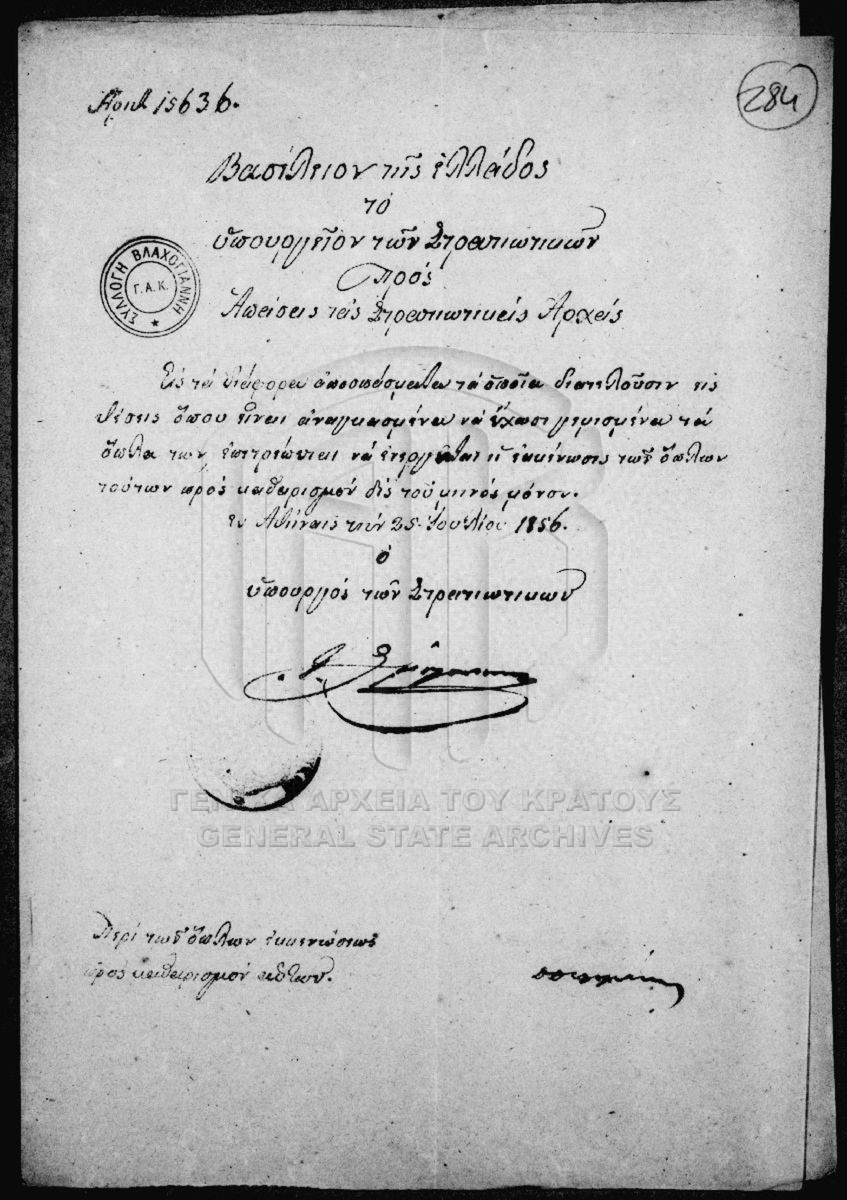 Αριθ. 15636.
284
Βασίλειον τῆς Ἑλλάδος
τὸ
Ὑπουργεῖον τῶν Στρατιωτικῶν
πρὸς
Ἁπάσας τὰς Στρατιωτικάς Ἀρχάς
ΣΥΛΛΟΓΗ ΒΛΑΧΟΓΙΑΝΝΗ
Γ.Α.Κ.
Εἰς τὰ διάφορα ἀποσπάσματα τὰ ὁποῖα διατελοῦσιν εἰς
θέσεις ὅπου εἶναι ἀναγκασμένα νὰ ἔχωσι γεμισμένα τὰ
ὅπλα των, ἐπιτρέπεται νὰ ἐνεργῆται ἡ ἐκκένωσις τῶν ὅπλων
τούτων πρὸς καθαρισμὸν δὶς τοῦ μηνὸς μόνον.
Ἐν Ἀθήναις τὴν 25 Ἰουλίου 1856.
ὁ
Ὑπουργὸς τῶν Στρατιωτικῶν
ΓΕΝΙΚΑ ΑΡΧΕΙΑ ΤΟΥ ΚΡΑΤΟΥΣ
GENERAL STATE ARCHIVES
Περὶ τῶν ὅπλων ἐκκενώσεως
πρὸς καθαρισμὸν αὐτῶν.